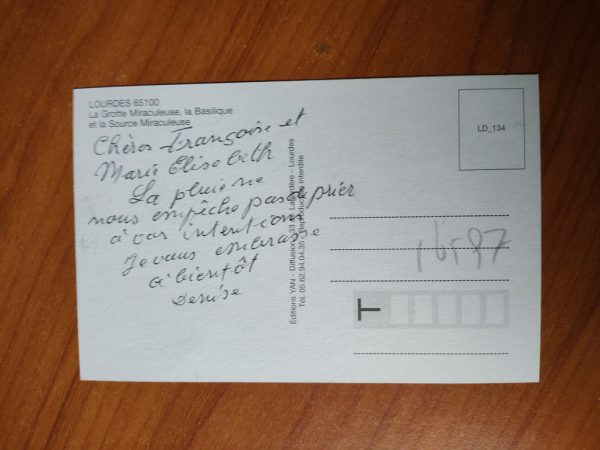 LOURDES 65100
La Grotte Miraculeuse, la Basilique
et la Source Miraculeuse
Chères Françoise et
Marie Elisabeth
La pluie ne
nous empêche pas de prier
à vos intentions
Je vous embrasse
à bientôt
Denise
Éditions YAN - Diffusion - 33
Lourdes
Tél. 05.62.94.04.35 - Reproduction interdite
LD_134
T